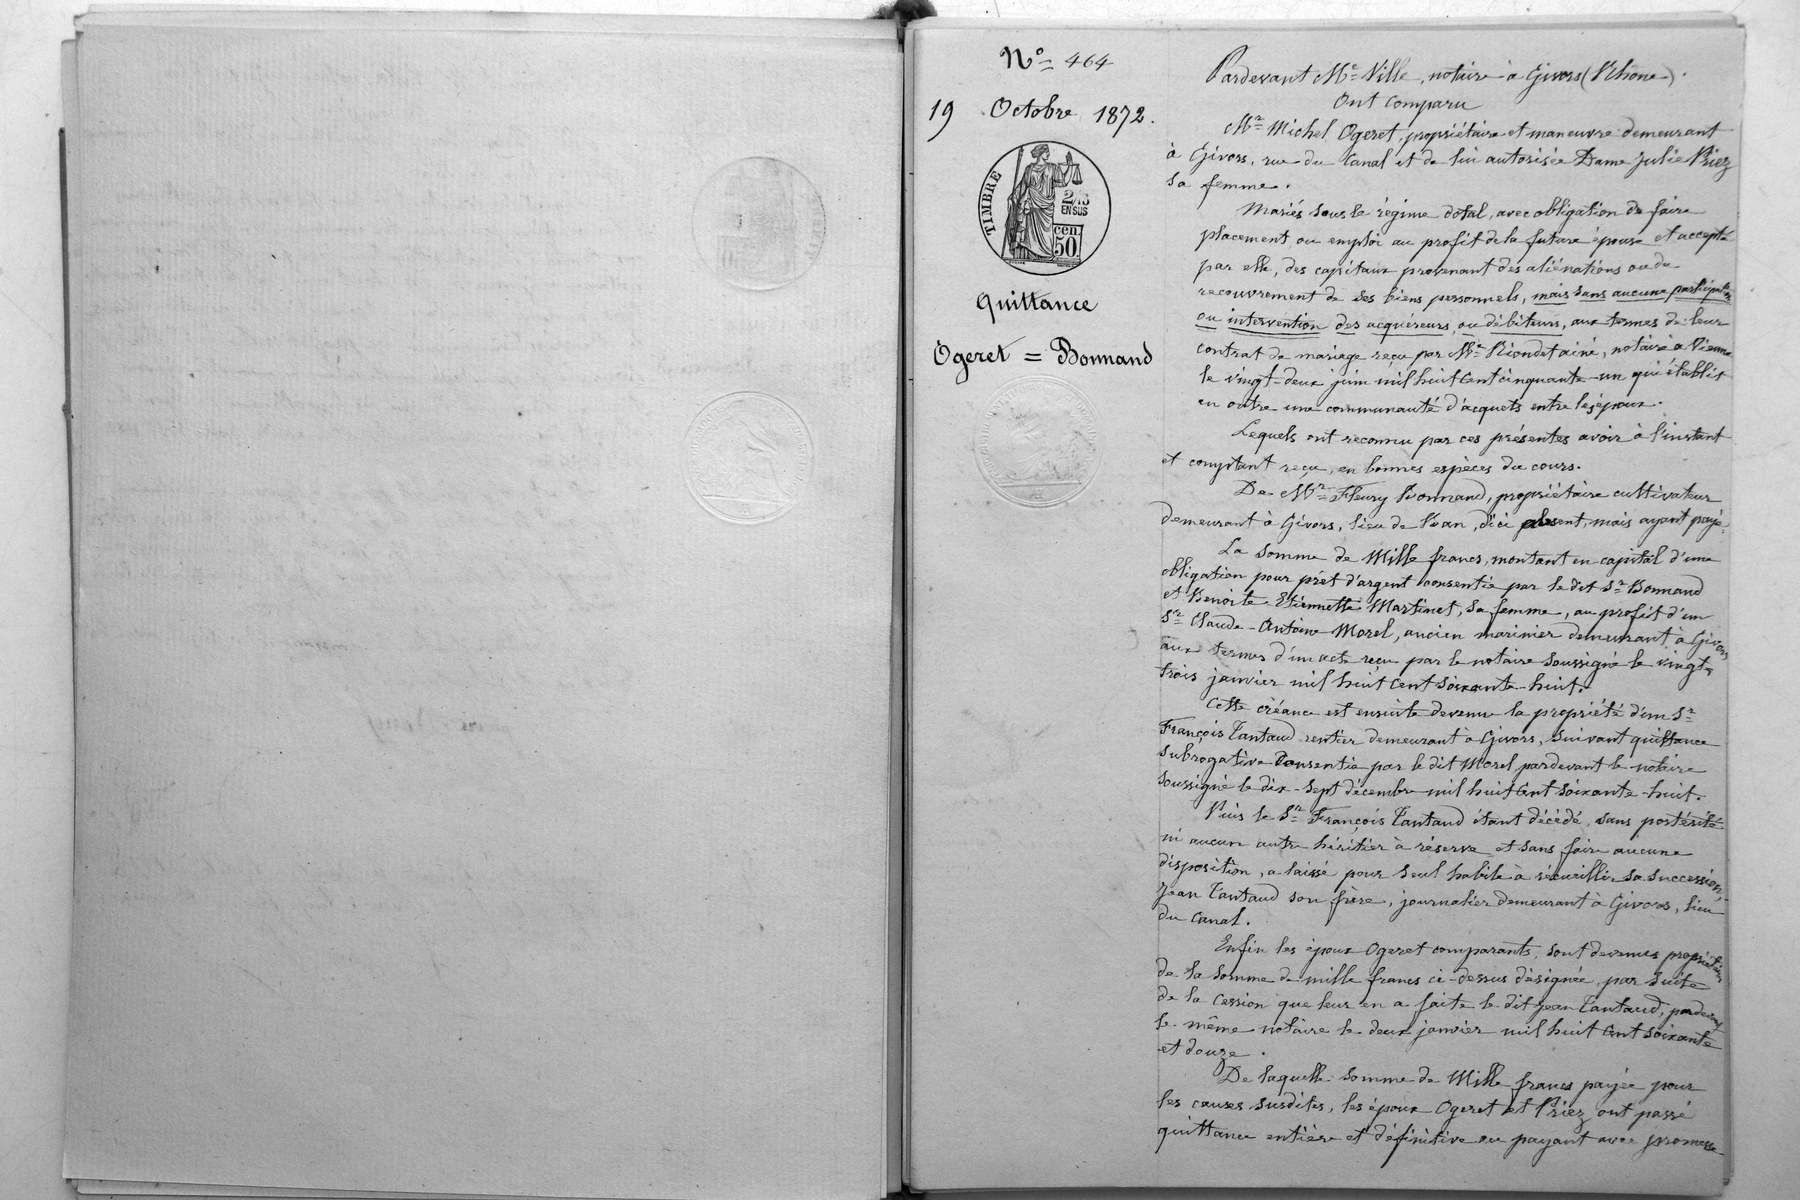 N° 464
19 Octobre 1872.
TIMBRE
2/10
EN SUS
50 cen.
Quittance
Ogeret = Bonnand
Pardevant Me Ville, notaire à Givors (Rhône).
Ont comparu
Mr Michel Ogeret, propriétaire et manœuvre demeurant
à Givors, rue du Canal et de lui autorisée Dame Julie Priez
sa femme.
Mariés sous le régime dotal, avec obligation de faire
placement ou emploi au profit de la future épouse et accepté
par elle, des capitaux provenant des aliénations ou du
recouvrement de ses biens personnels, mais sans aucune participation
ou intervention des acquéreurs, ou débiteurs, aux termes de leur
contrat de mariage reçu par Me Riondet ainé, notaire à Vienne
le vingt-deux juin mil huit cent cinquante-un qui établit
en outre une communauté d'acquets entre les époux.
Lequels ont reconnu par ces présentes avoir à l'instant
et comptant reçu, en bonnes espèces du cours.
De Mr Fleury Bonnand, propriétaire cultivateur
demeurant à Givors, lieu de Bans, d'ici absent, mais ayant payé.
La somme de Mille francs, montant en capital d'une
obligation pour prêt d'argent consentie par le dit Sr Bonnand
et Benoite Etiennette Martinet, sa femme, au profit d'un
Sr Claude-Antoine Morel, ancien marinier demeurant à Givors
aux termes d'un acte reçu par le notaire soussigné le vingt
trois janvier mil huit cent soixante-huit.
Cette créance est ensuite devenue la propriété d'un Sr
François Tantaud rentier demeurant à Givors, suivant quittance
subrogative consentie par le dit Morel pardevant le notaire
soussigné le dix-sept décembre mil huit cent soixante-huit.
Puis le Sr François Tantaud étant décédé, sans postérité
ni aucun autre héritier à réserve et sans faire aucune
disposition, a laissé pour seul habile à recueillir sa succession,
Jean Tantaud son frère, journalier demeurant à Givors, lieu
du Canal.
Enfin les époux Ogeret comparants, sont devenus propriétaires
de la somme de mille francs ci-dessus désignée, par suite
de la cession que leur en a faite le dit Jean Tantaud, pardevant
le même notaire le deux janvier mil huit cent soixante
et douze.
De laquelle somme de Mille francs payée pour
les causes susdites, les époux Ogeret et Priez ont passé
quittance entière et définitive au payant avec promesse